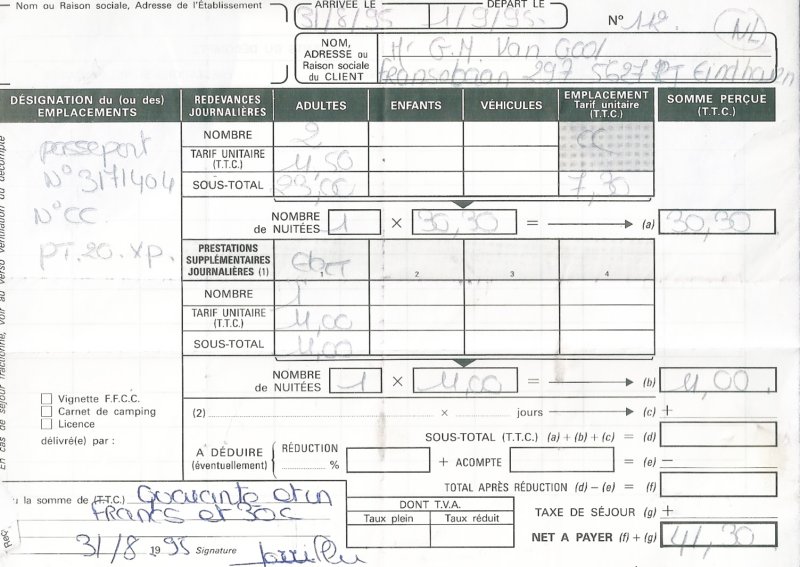 Nom ou Raison sociale, Adresse de l'Établissement
ARRIVÉE LE DÉPART LE
31/8/95 1/9/95. N° 112 NL
NOM, ADRESSE ou Raison sociale du CLIENT
Hr G.M. Van Gool
Fransebaan 297 5627 PT Eindhoven
DÉSIGNATION du (ou des) EMPLACEMENTS
REDEVANCES JOURNALIÈRES ADULTES ENFANTS VÉHICULES EMPLACEMENT Tarif unitaire (T.T.C.) SOMME PERÇUE (T.T.C.)
passeport
N° 3171404
N° CC
PT. 20. XP.
NOMBRE 2 CC
TARIF UNITAIRE (T.T.C.) 11,50
SOUS-TOTAL 23,00 7,30
NOMBRE de NUITÉES 1 × 30,30 = (a) 30,30
PRESTATIONS SUPPLÉMENTAIRES JOURNALIÈRES (1) elect 1 2 3 4
NOMBRE 1
TARIF UNITAIRE (T.T.C.) 11,00
SOUS-TOTAL 11,00
NOMBRE de NUITÉES 1 × 11,00 = (b) 11,00
Vignette F.F.C.C.
Carnet de camping
Licence
délivré(e) par :
(2) × jours (c) +
SOUS-TOTAL (T.T.C.) (a) + (b) + (c) = (d)
A DÉDUIRE (éventuellement) RÉDUCTION % + ACOMPTE = (e) −
TOTAL APRÈS RÉDUCTION (d) − (e) = (f)
DONT T.V.A.
Taux plein Taux réduit
TAXE DE SÉJOUR (g) +
NET A PAYER (f) + (g) 41,30
la somme de (T.T.C.) Quarante et un
francs et 30c
31/8 1995 Signature
En cas de séjour fractionné, voir au verso ventilation du décompte